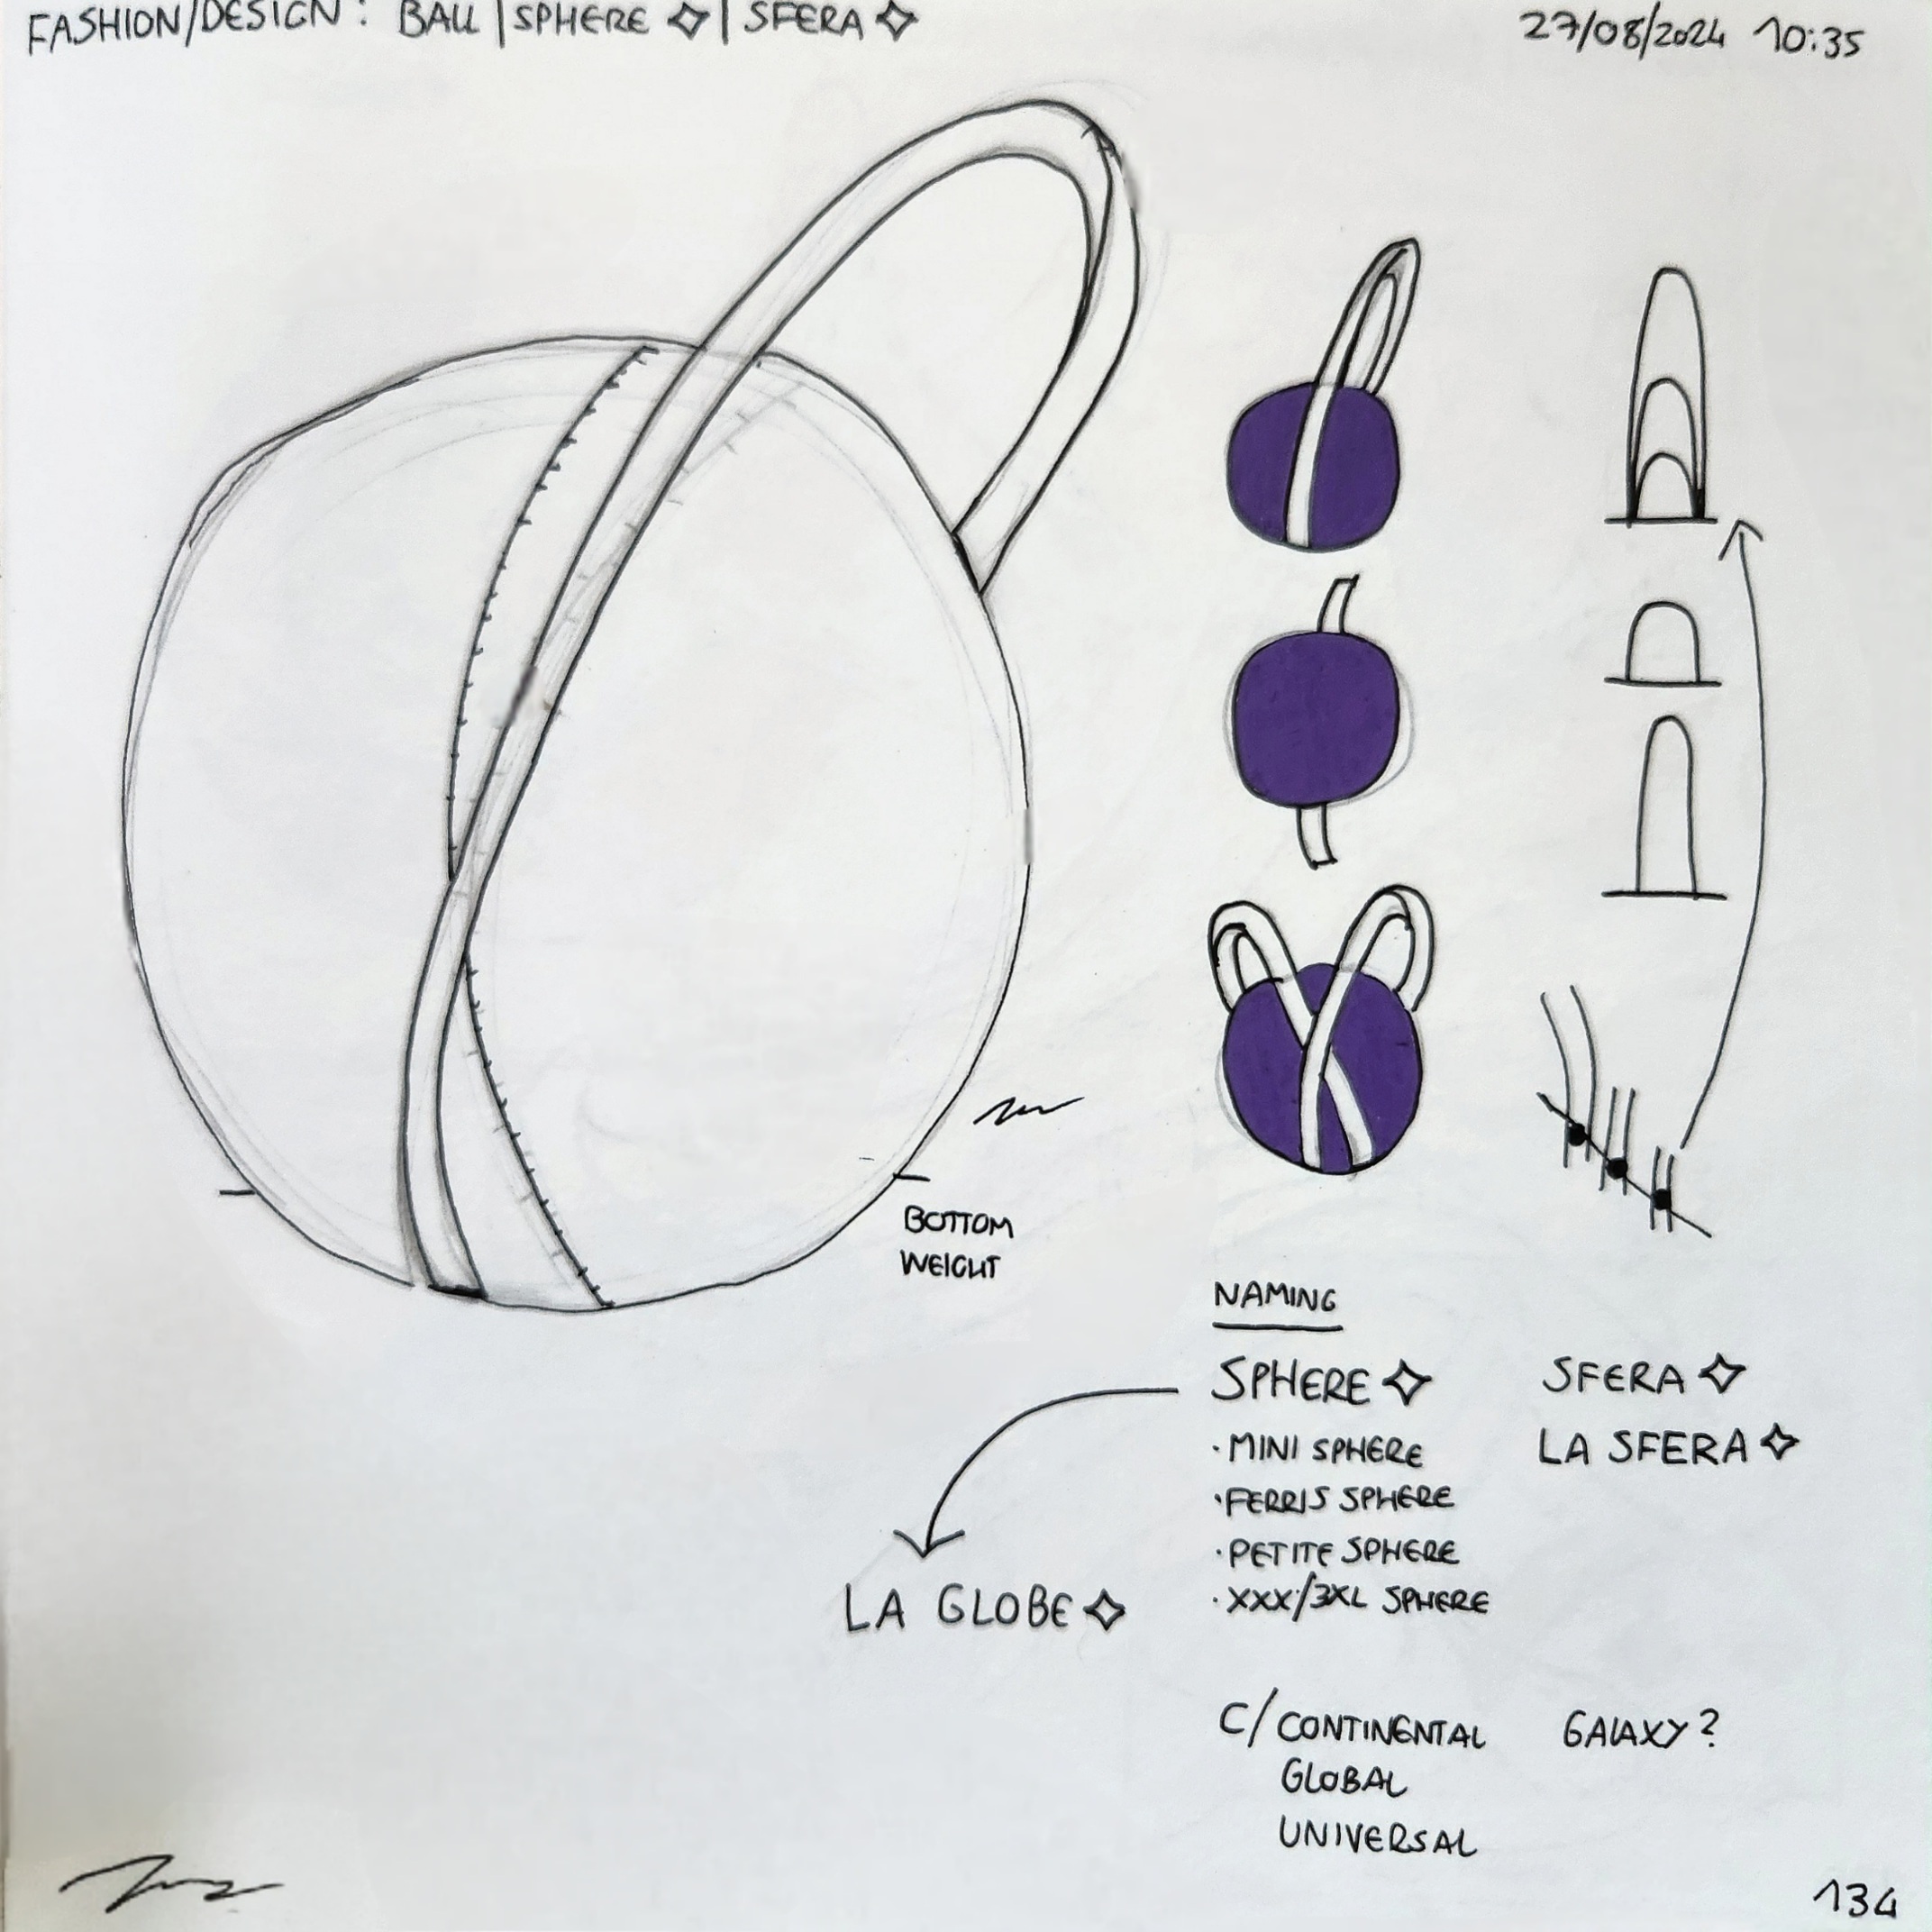 FASHION/DESIGN: BALL | SPHERE ✧ | SFERA ✧
27/08/2024 10:35
BOTTOM
WEIGHT
NAMING
SPHERE ✧
· MINI SPHERE
· FERRIS SPHERE
· PETITE SPHERE
· XXX/3XL SPHERE
SFERA ✧
LA SFERA ✧
LA GLOBE ✧
C/CONTINENTAL
GLOBAL
UNIVERSAL
GALAXY?
134